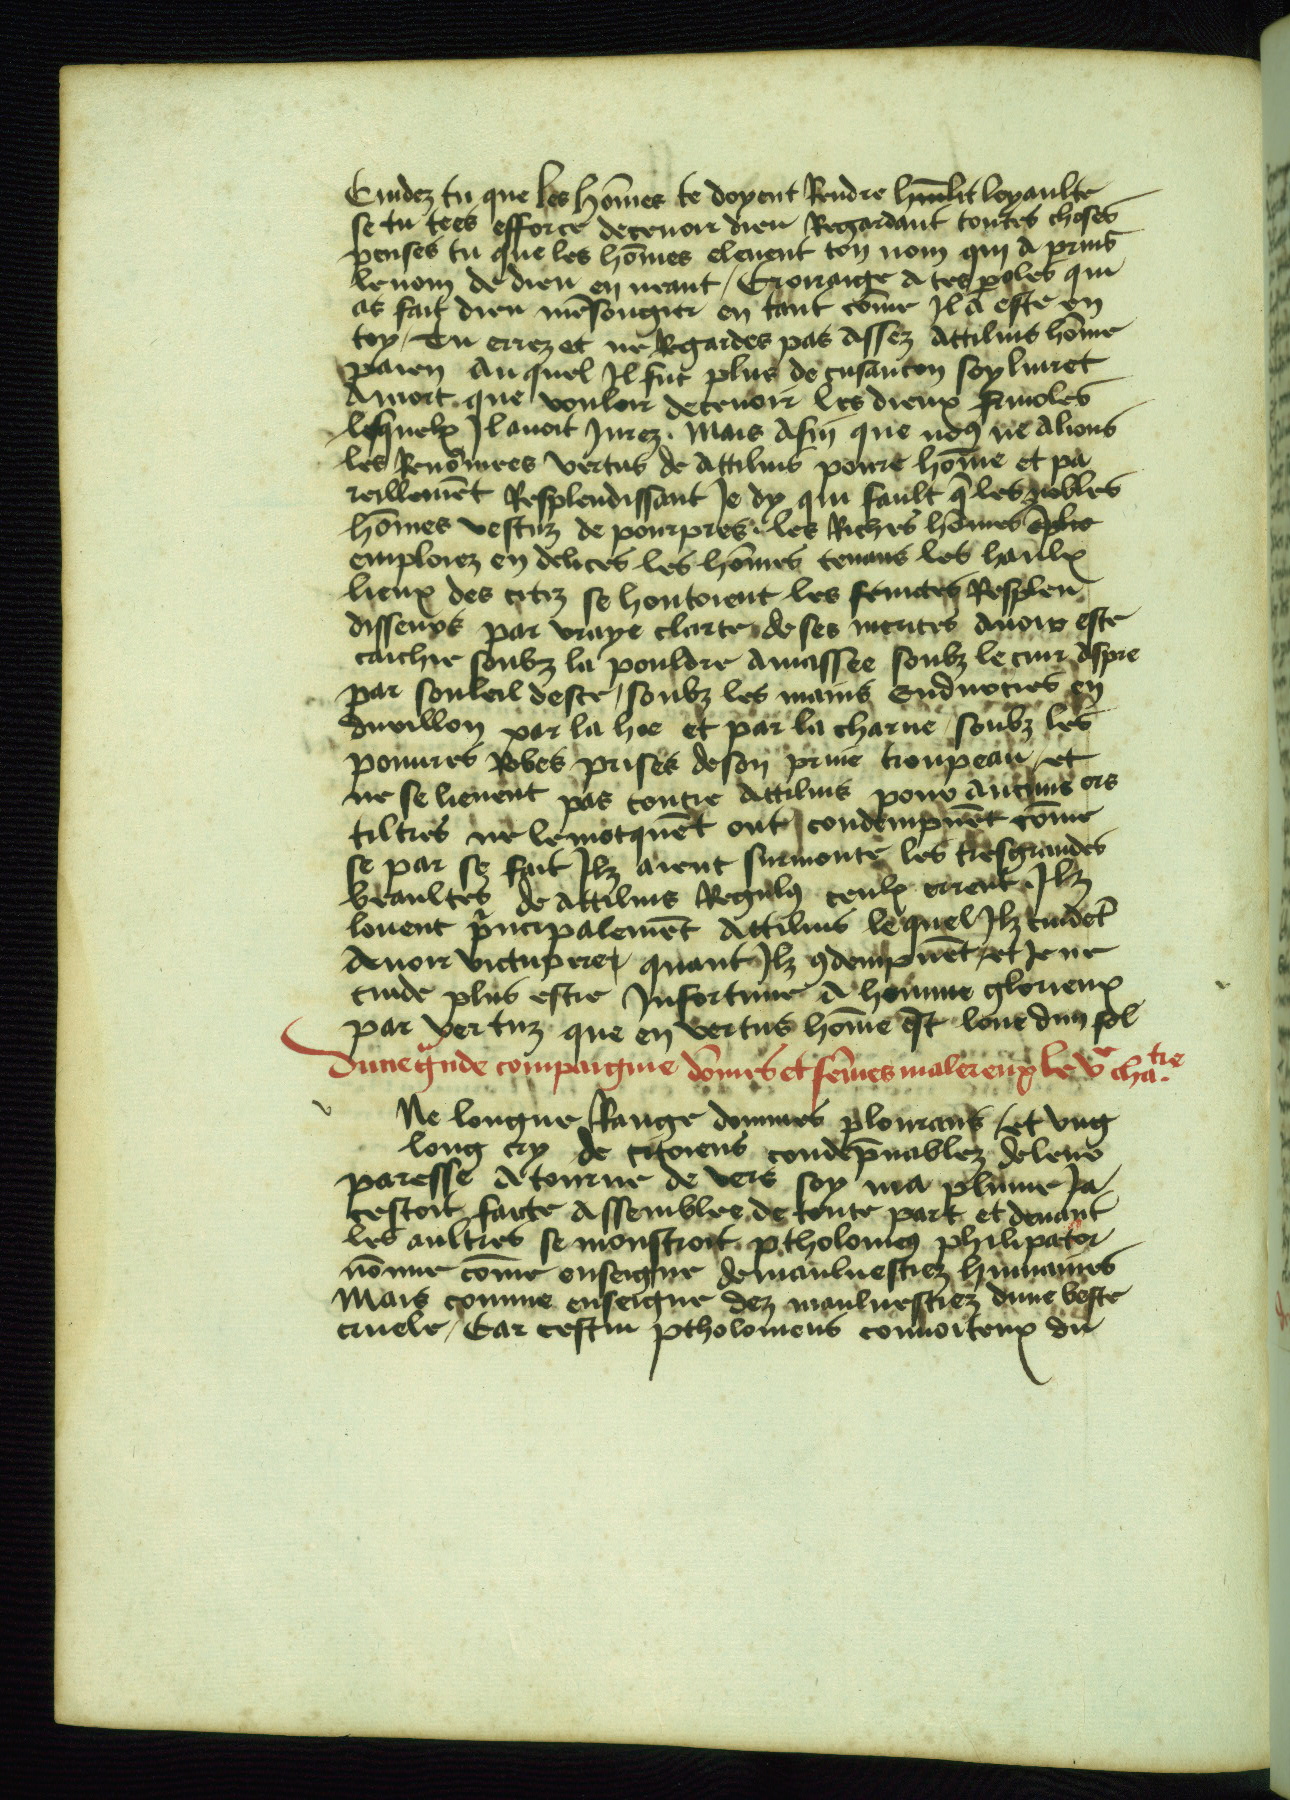 Cuidez tu que les hōmes te doyent Rendre humblit loyaulte
se tu tees efforce decevoir dieu Regardant toutes choses
penses tu que les hōmes elevent ton nom qui a prins
le nom de dieu en neant / Croiraige a tes poles qui
as fait dieu mēsongier en tant cōme Il a este en
toy / Tu errez et ne Regardes pas assez Attilius hōme
paien Auquel Il fut plus de cusancon soy livret
A mort que vouloir decevoir les dieux frivoles
lesquelx Il avoit Jurez . Mais Afin que no9 ne Alions
les Renōmees vertus de Attilius povre hōme et pa
reillemēt Resplendissant Je dy qui fault q̄ les nobles
hōmes vestuz de pourpres . les Riches hōmes
emploiez en delices les hōmes tenans les haulx
lieux des citez se hontoient les Resplen
dissenps par vraye clarte de ses merites avoir este
caichie soubz la pouldre amassee soubz le cuir aspre
par souleil deste / soubz les mains endurcies en
duvillon par la hoe et par la charue / soubz les
povures Robes prises de son prive troupeau / et
ne se lievent pas contre Attilius pour Aucuns ors
tiltres ne le mocquēt ont condempnēt cōme
se par se fait Ilz aient surmonte les tresgrandes
beaultes de Attilius Regul9 ceulx errent . Ilz
louent pͥncipalemēt Attilius le quel Ilz cuidēt
Avoir victupere quant Ilz 9dempnēt / et Je ne
cuide plus estre Infortune A homme glorieux
par vertuz que en vertus hōme est loue dun fol
Dune gͣnde compaignie dōmes et fēmes malereux le vͤ cha.tre
Ne longue Range dommes plourans / et ung
long cry de citoiens condēpnablez de leur
paresse Atourne de vers soy ma plume Ja
cestoit faicte Assemblee de toute part et devant
les aultres se monstroit ptholome9 philipator
nōmme cōme enseigne de maulvestiez humaines
Mais comme enseigne dez maulvestiez dune beste
cruele / Car cestui ptholomeus convoiteux du